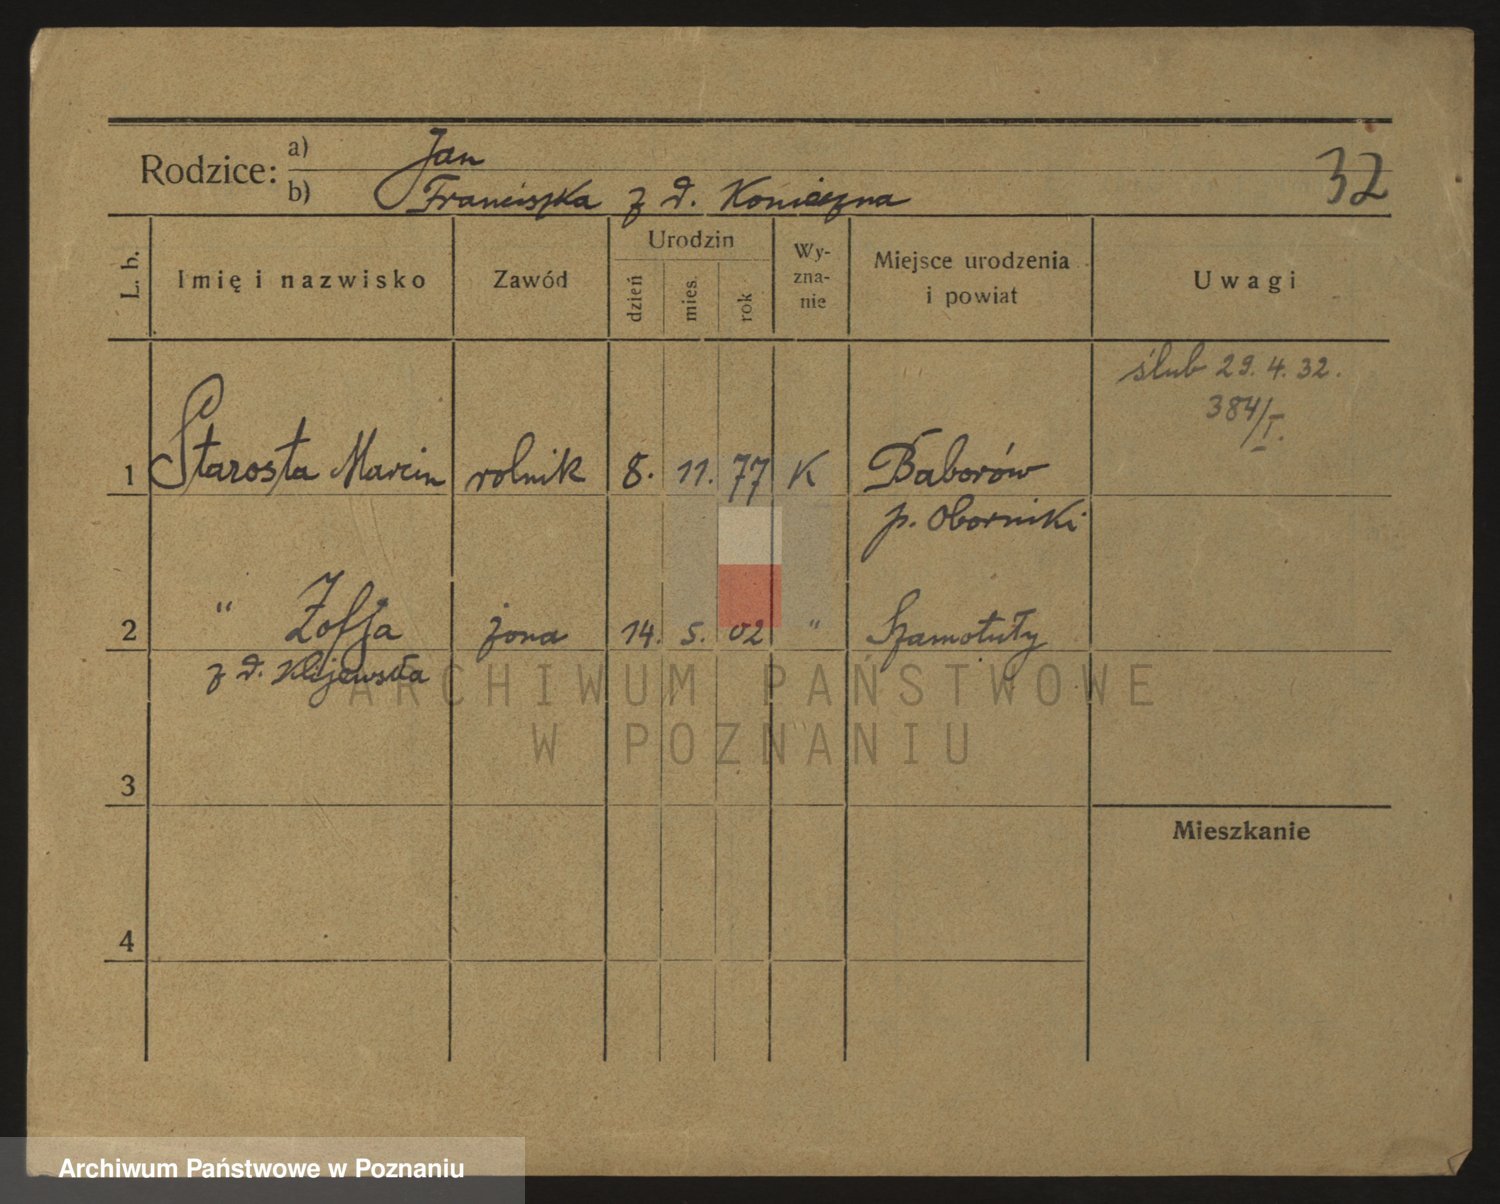 Rodzice: a) Jan
b) Franciszka z d. Konieczna
32
L. b.
Imię i nazwisko
Zawód
Urodzin
dzień
mies.
rok
Wy-
zna-
nie
Miejsce urodzenia
i powiat
Uwagi
ślub 29. 4. 32.
384/I.
1 Starosta Marcin rolnik 8. 11. 77 K Baborów
p. Oborniki
2 " Zofja żona 14. 5. 02 " Szamotuły
z d. Kijewska
ARCHIWUM PAŃSTWOWE
W POZNANIU
3
Mieszkanie
4
Archiwum Państwowe w Poznaniu